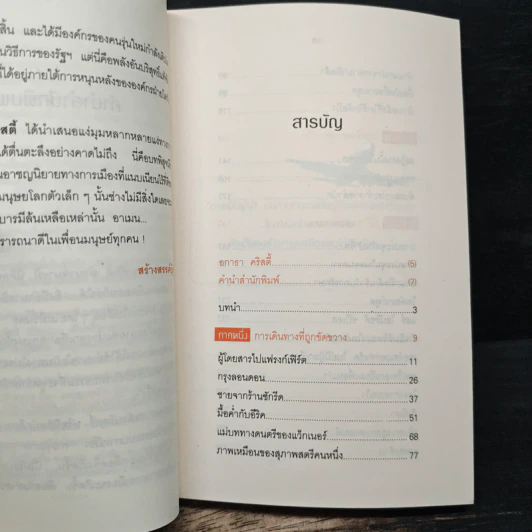 สิ้น และได้มีองค์กรของคนรุ่นใหม่กำลังเดิน
นวิธีการของรัฐฯ แต่นี่คือพลังอันบริสุทธิ์
ได้อยู่ภายใต้การหนุนหลังขององค์กร
สตี้ ได้นำเสนอแง่มุมหลากหลาย
ได้ตื่นตะลึงอย่างคาดไม่ถึง นี่คือบทพิสูจน์
นอาชญนิยายทางการเมืองที่แนบเนียน
มนุษยโลกตัวเล็ก ๆ นั้นช่างไม่มีสิ่งใด
บารมีล้นเหลือเหล่านั้น อาเมน...
รารถนาดีในเพื่อนมนุษย์ทุกคน !
สร้างสรรค์
สารบัญ
อกาธา คริสตี้ (5)
คำนำสำนักพิมพ์ (7)
บทนำ 3
ภาคหนึ่ง การเดินทางที่ถูกขัดขวาง 9
ผู้โดยสารไปแฟรงก์เฟิร์ต 11
กรุงลอนดอน 26
ชายจากร้านซักรีด 37
มื้อค่ำกับอีริค 51
แม่บททางดนตรีของแว็กเนอร์ 68
ภาพเหมือนของสุภาพสตรีคนหนึ่ง 77